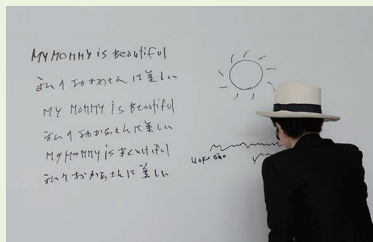 MY MOMMY is Beautiful
私のおかあさんは美しい
MY MOMMY is Beautiful
私のおかあさんは美しい
MY MOMMY is Beautiful
私のおかあさんは美しい
yoko ono